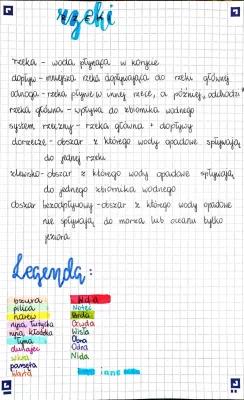 rzeki
rzeka - woda płynąca w korycie
dopływ - mniejsza rzeka dopływająca do rzeki głównej
odnoga - rzeka płynie w innej rzece, a później „odchodzi"
rzeka główna - wpływa do zbiornika wodnego
system rzeczny - rzeka główna + dopływy
dorzecze - obszar z którego wody opadowe spływają
do jednej rzeki
zlewisko - obszar z którego wody opadowe spływają
do jednego zbiornika wodnego
obszar bezodpływowy - obszar z którego wody opadowe
nie spływają do morza lub oceanu tylko
jeziora
Legenda:
bzura
pilica
narew
nysa łużycka
nysa kłodzka
Tyna
dunajec
wkra
parsęta
warta
Noteć
Brda
Wisła
Obra
Odra
Nida
inne